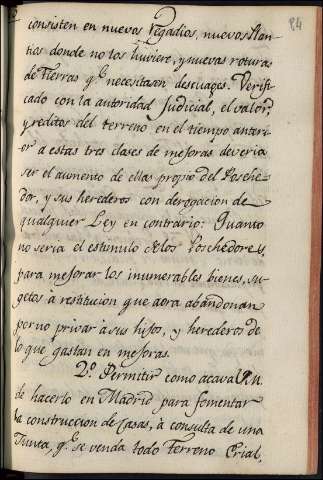 84
consisten en nuevos Regadios, nuevos Plan-
tios donde no los huviere, y nuevas roturas
de Tierras q.e necesitasen descuages. Verifi-
cado con la autoridad Judicial, el valor,
y reditos del terreno en el tiempo anteri-
or a estas tres clases de mejoras deveria
ser el aumento de ellas propio del Poshe-
dor, y sus herederos con derogacion de
qualquier Ley en contrario: Quanto
no seria el estimulo de los Poshedores,
para mejorar los inumerables bienes, su-
getos à restitucion que aora abandonan
por no privar à sus hijos, y herederos de
lo que gastan en mejoras.
2.o Permitir como acava V.M.
de hacerlo en Madrid para fomentar
la construccion de Casas, à consulta de una
Junta, q.e se venda todo Terreno Erial,